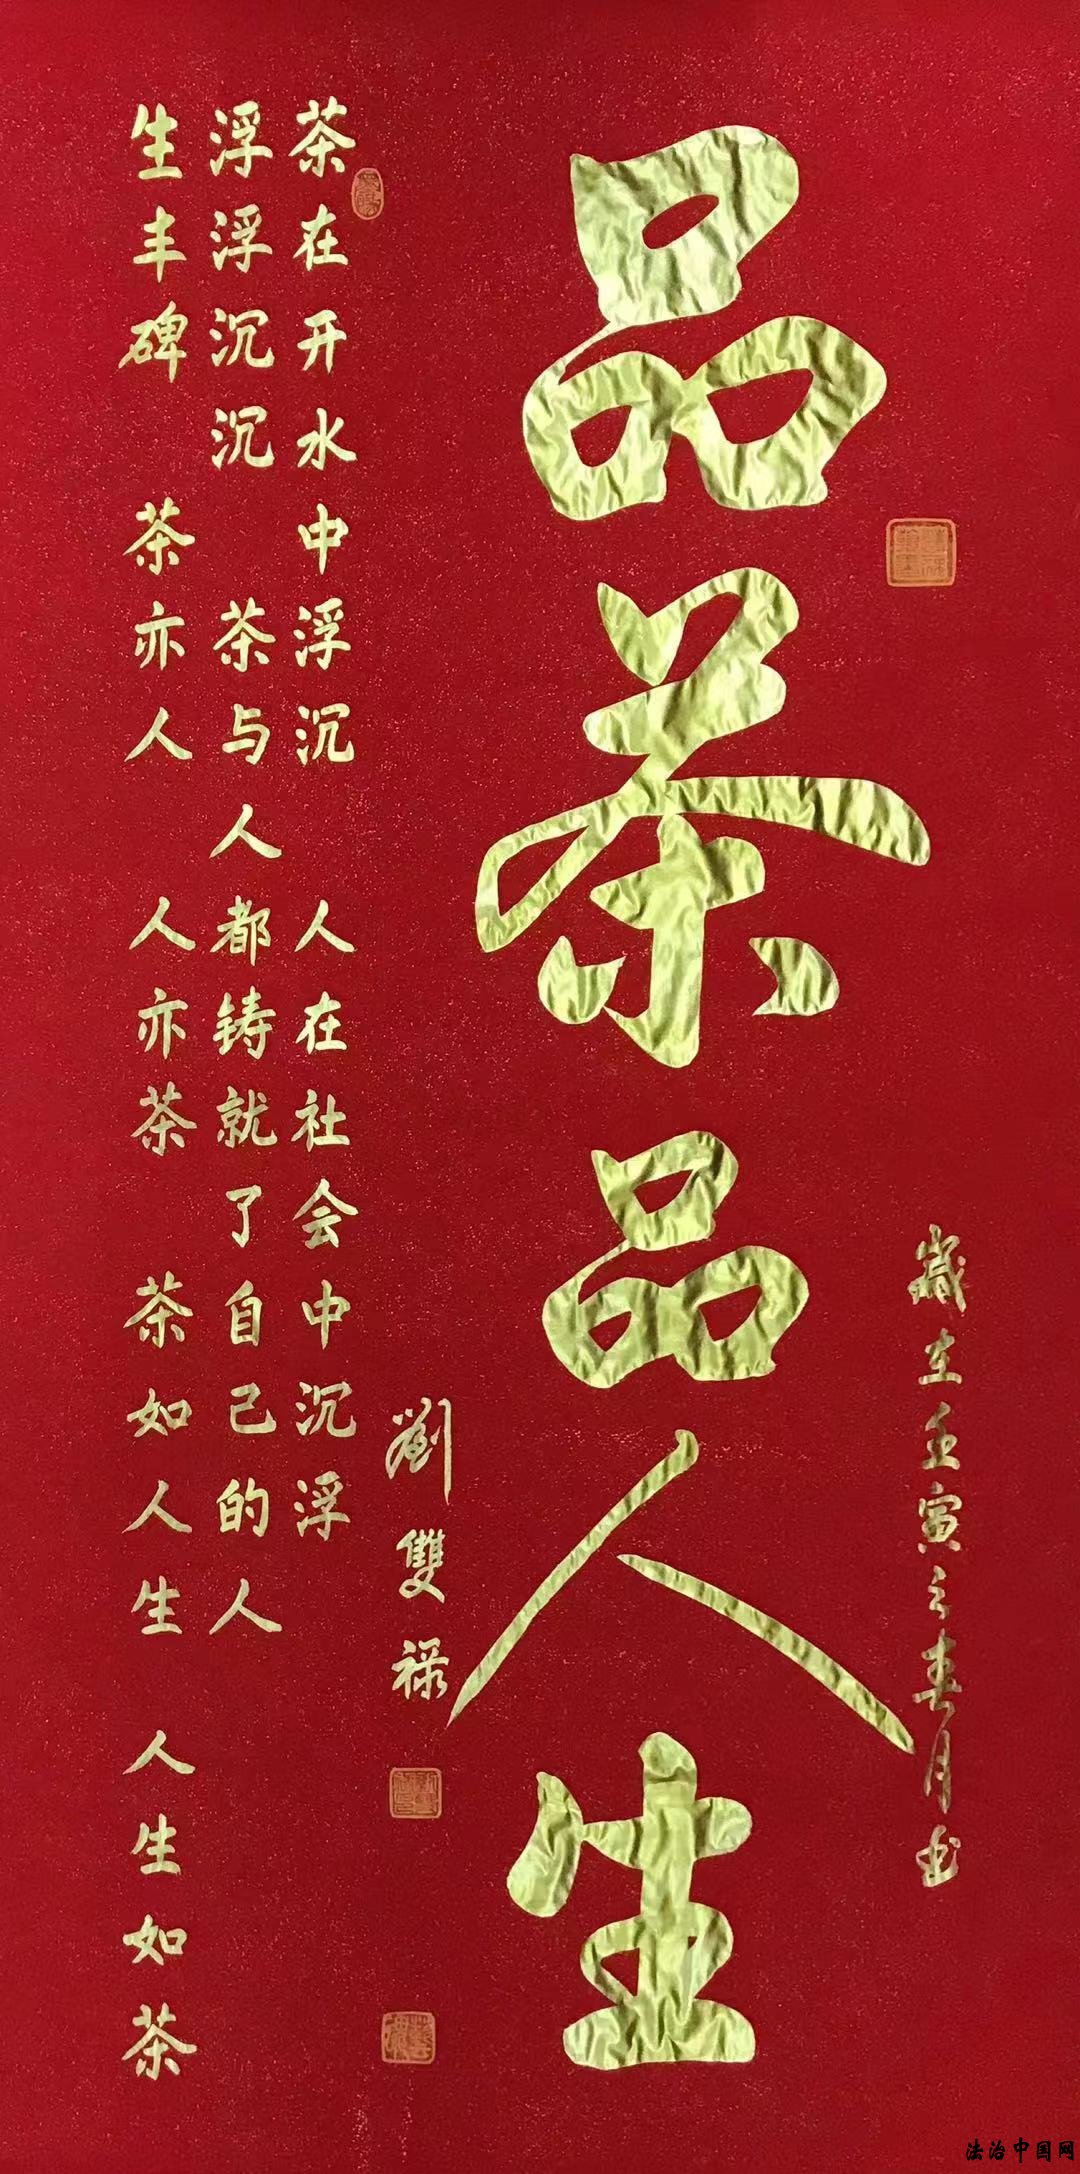 歲在壬寅之春月书
品茶品人生
劉雙禄
茶在开水中浮沉 人在社会中沉浮
浮浮沉沉 茶与人都铸就了自己的人
生丰碑 茶亦人 人亦茶 茶如人生 人生如茶
法治中国网